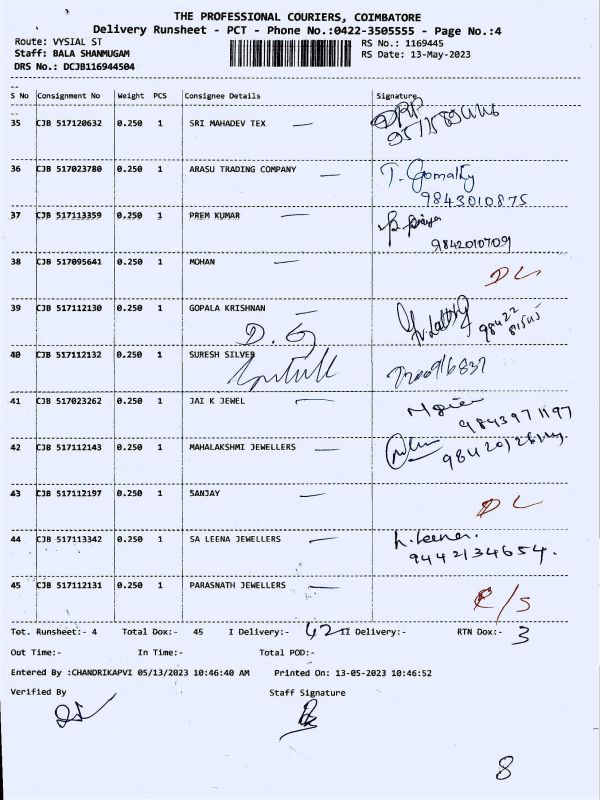 THE PROFESSIONAL COURIERS, COIMBATORE
Delivery Runsheet - PCT - Phone No.:0422-3505555 - Page No.:4
Route: VYSIAL ST RS No.: 1169445
Staff: BALA SHANMUGAM RS Date: 13-May-2023
DRS No.: DCJB116944504
S No Consignment No Weight PCS Consignee Details Signature
35 CJB 517120632 0.250 1 SRI MAHADEV TEX
36 CJB 517023780 0.250 1 ARASU TRADING COMPANY T. Gomathy
9843010875
37 CJB 517113359 0.250 1 PREM KUMAR
9842010709
38 CJB 517095641 0.250 1 MOHAN DL
39 CJB 517112130 0.250 1 GOPALA KRISHNAN
D. G
40 CJB 517112132 0.250 1 SURESH SILVER
41 CJB 517023262 0.250 1 JAI K JEWEL
9843971197
42 CJB 517112143 0.250 1 MAHALAKSHMI JEWELLERS
43 CJB 517112197 0.250 1 SANJAY DL
44 CJB 517113342 0.250 1 SA LEENA JEWELLERS L. Leena.
9442134654.
45 CJB 517112131 0.250 1 PARASNATH JEWELLERS C/S
Tot. Runsheet:- 4 Total Dox:- 45 I Delivery:- 42 II Delivery:- RTN Dox:- 3
Out Time:- In Time:- Total POD:-
Entered By :CHANDRIKAPVI 05/13/2023 10:46:40 AM Printed On: 13-05-2023 10:46:52
Verified By Staff Signature
8